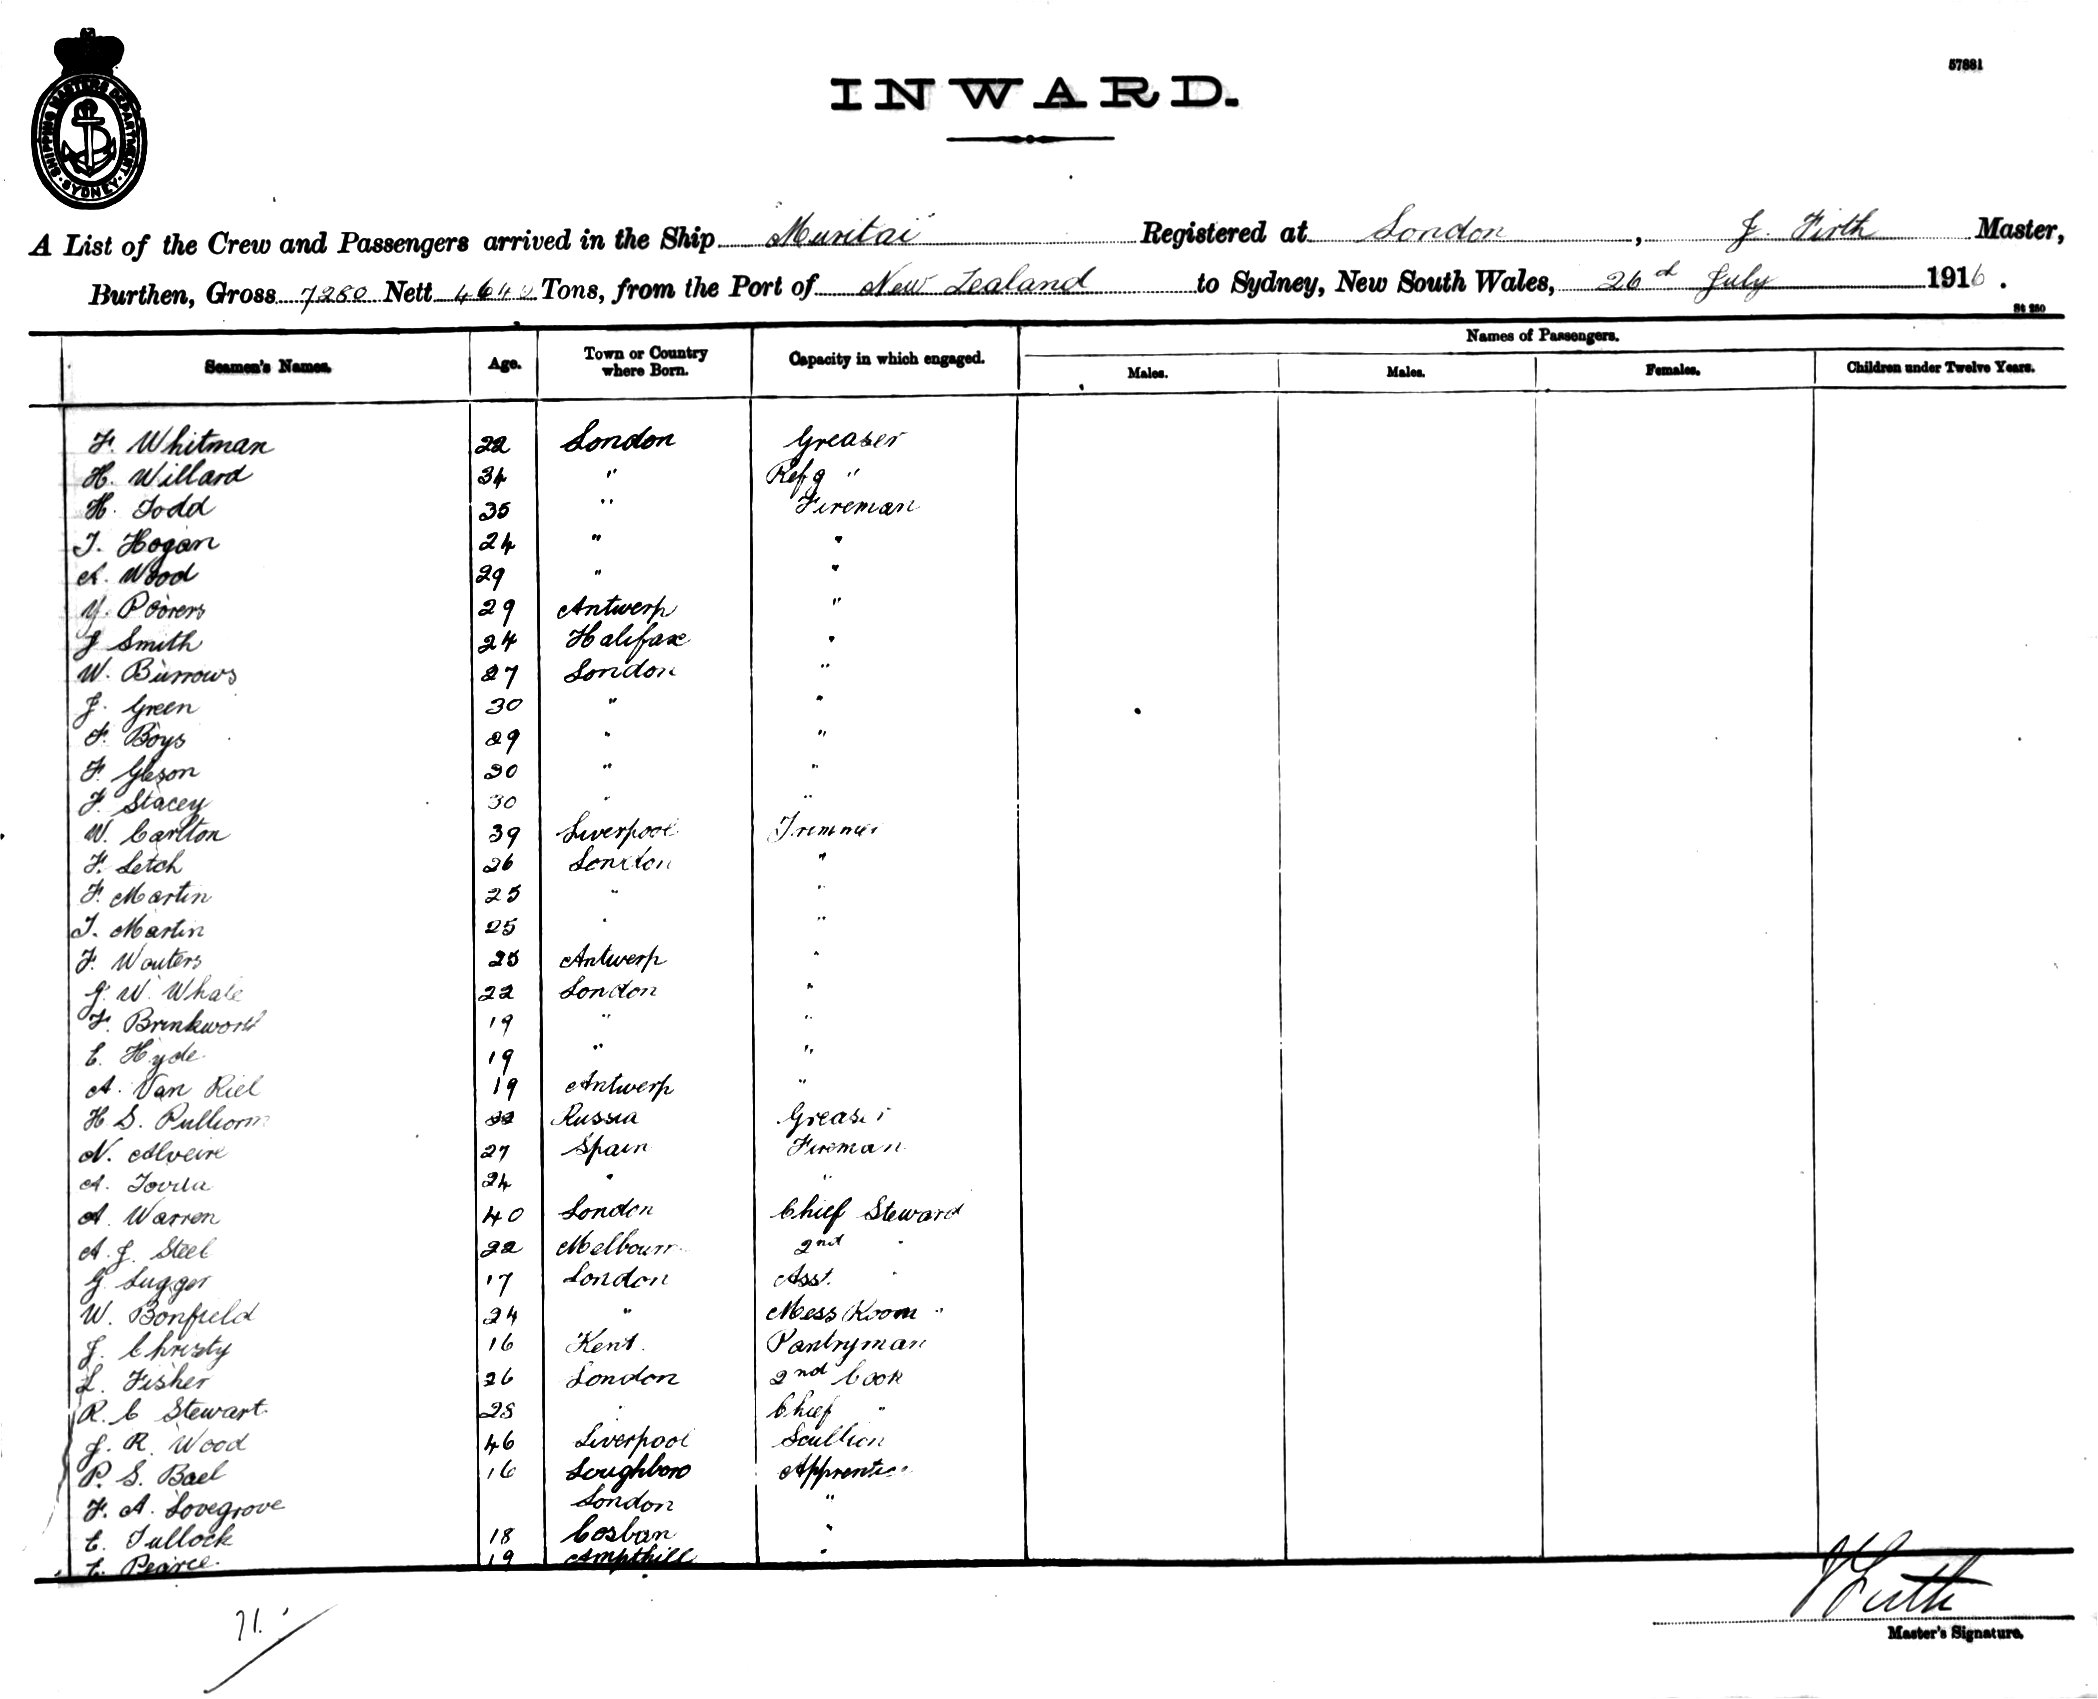 SHIPPING MASTERS DEPARTMENT · SYDNEY ·
57881
INWARD.
A List of the Crew and Passengers arrived in the Ship "Muritai" Registered at London, J. Firth Master,
Burthen, Gross 7280 Nett 4640 Tons, from the Port of New Zealand to Sydney, New South Wales, 26th July 1916.
St 250
Names of Passengers.
Seamen's Names. Age. Town or Country where Born. Capacity in which engaged. Males. Males. Females. Children under Twelve Years.
F. Whitman 22 London Greaser
H. Willard 34 " Refg "
H. Todd 35 " Fireman
T. Hogan 24 " "
A. Wood 29 " "
Y. Poorers 29 Antwerp "
J Smith 24 Halifax "
W. Burrows 27 London "
J. Green 30 " "
F. Boys 29 " "
F. Gleson 30 " "
F. Stacey 30 " "
W. Carlton 39 Liverpool Trimmer
F. Letch 26 London "
F. Martin 25 " "
T. Martin 25 " "
F. Wouters 25 Antwerp "
G. W. Whale 22 London "
F. Brinkworth 19 " "
E. Hyde 19 " "
A. Van Riel 19 Antwerp "
H S. Russia Greaser
N. Alveire 27 Spain Fireman
A. 24 " "
A. Warren 40 London Chief Steward
A. J. Steel 22 Melbourne 2nd "
G. Lugger 17 London Asst. "
W. Bonfield 24 " Mess Room "
J. Christy 16 Kent Pantryman
L. Fisher 26 London 2nd Cook
R. C Stewart 28 " Chief "
J. R. Wood 46 Liverpool Scullion
P. S. Bael 16 Loughboro Apprentice
F. A. Lovegrove London "
E. Tullock 18 "
E. Pearce 19 Ampthill "
71.
J Firth
Master's Signature.